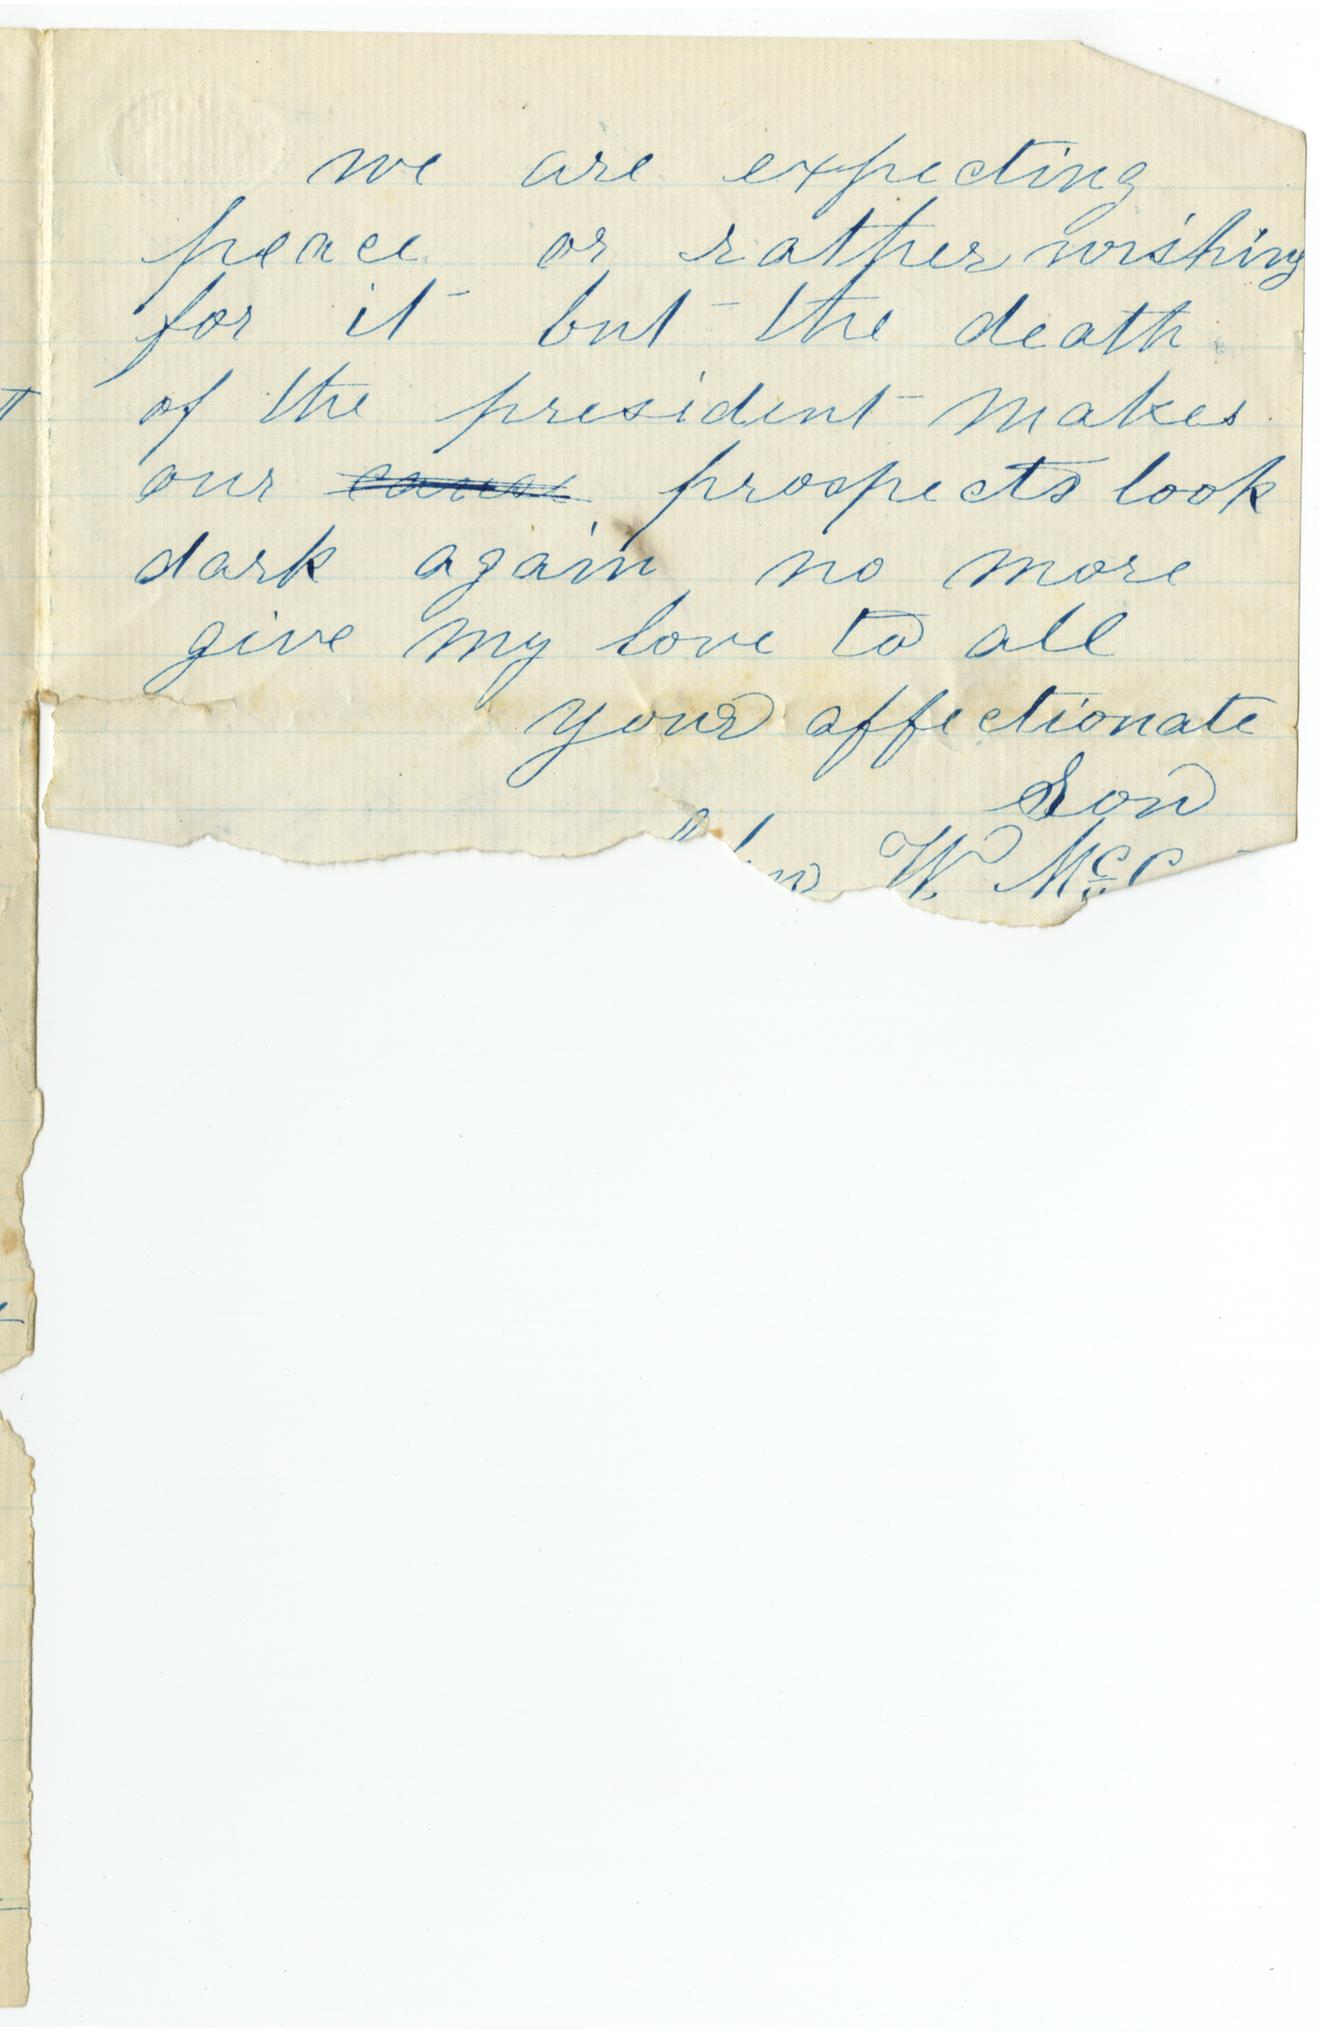 we are expecting
peace or rather wishing
for it but the death
of the president makes
our cause prospects look
dark again no more
give my love to all
your affectionate
Son
W. McC